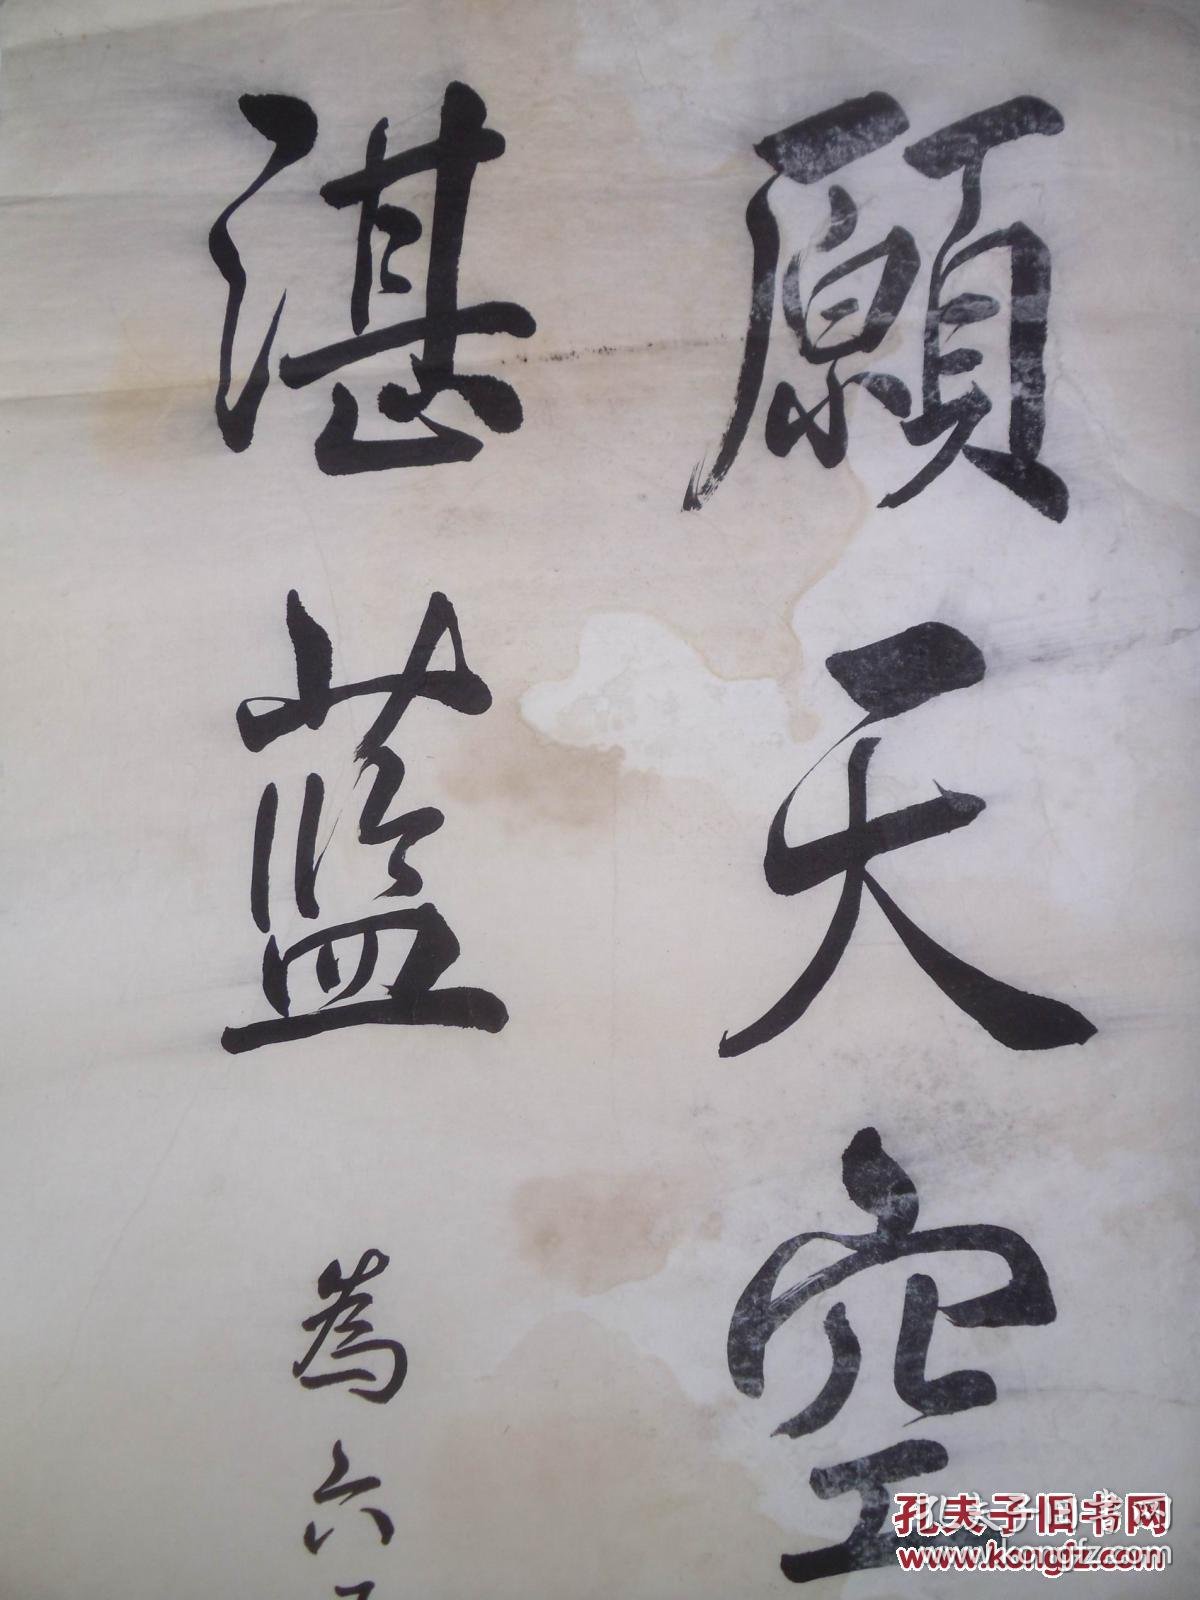 願天空
湛藍
為六
孔夫子旧书网
www.kongfz.com